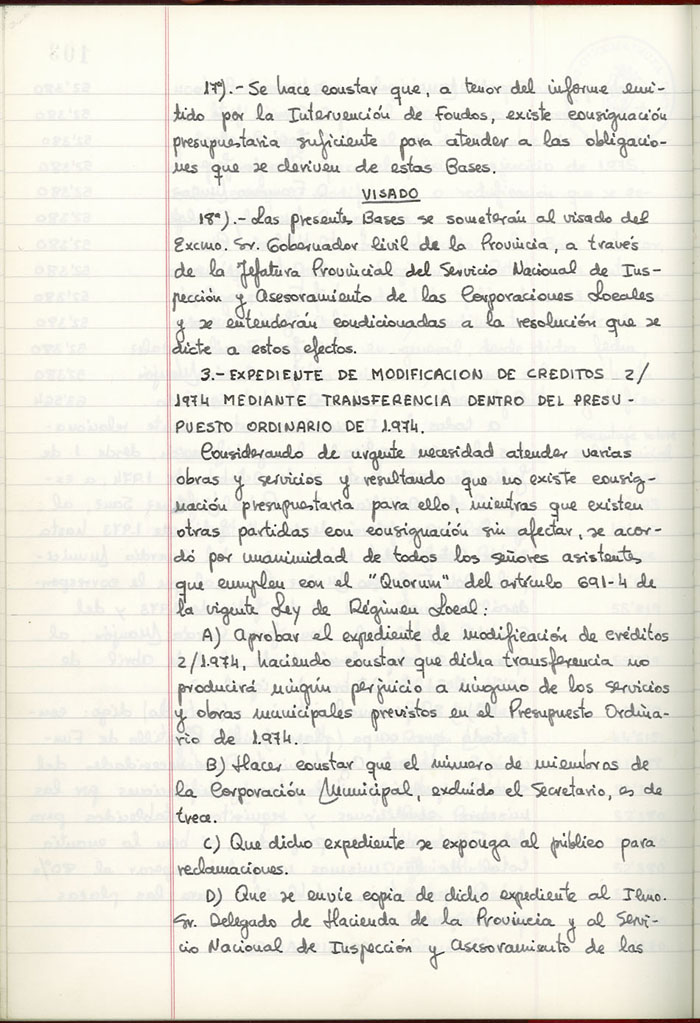 17ª).- Se hace constar que, a tenor del informe emi-
tido por la Intervención de Fondos, existe consignación
presupuestaria suficiente para atender a las obligacio-
nes que se deriven de estas Bases.
VISADO
18ª).- Las presentes Bases se someterán al visado del
Excmo. Sr. Gobernador Civil de la Provincia, a través
de la Jefatura Provincial del Servicio Nacional de Ins-
pección y Asesoramiento de las Corporaciones Locales
y se entenderán condicionadas a la resolución que se
dicte a estos efectos.
3.- EXPEDIENTE DE MODIFICACION DE CREDITOS 2/
1974 MEDIANTE TRANSFERENCIA DENTRO DEL PRESU-
PUESTO ORDINARIO DE 1.974.
Considerando de urgente necesidad atender varias
obras y servicios y resultando que no existe consig-
nación presupuestaria para ello, mientras que existen
otras partidas con consignación sin afectar, se acor-
dó por unanimidad de todos los señores asistentes
que cumplen con el "Quorum" del artículo 691-4 de
la vigente Ley de Régimen Local:
A) Aprobar el expediente de modificación de créditos
2/1.974, haciendo constar que dicha transferencia no
producirá ningún perjuicio a ninguno de los servicios
y obras municipales previstos en el Presupuesto Ordina-
rio de 1.974.
B) Hacer constar que el número de miembros de
la Corporación Municipal, excluido el Secretario, es de
trece.
C) Que dicho expediente se exponga al público para
reclamaciones.
D) Que se envíe copia de dicho expediente al Ilmo.
Sr. Delegado de Hacienda de la Provincia y al Servi-
cio Nacional de Inspección y Asesoramiento de las